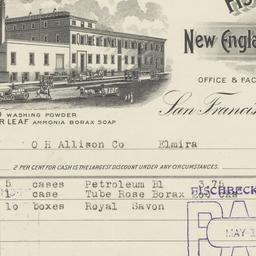 New Engla
OFFICE & FAC
WASHING POWDER
R LEAF AMMONIA BORAX SOAP
San Francis
O H Allison Co Elmira
2 PER CENT FOR CASH IS THE LARGEST DISCOUNT UNDER ANY CIRCUMSTANCES.
5 cases Petroleum Bl 3.75
1 case Tube Rose Borax
10 boxes Royal Savon
FISCHBECK
PA
MAY 1